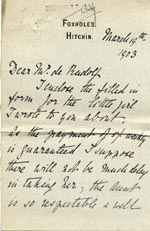 FOXHOLES,
HITCHIN.
March 19th
1903
Dear Mr. de Rudolf
I enclose the filled in
form for the little girl
I wrote to you about.
As the payment of
is guaranteed I suppose
there will not be much delay
in taking her, the aunt
is so respectable & well